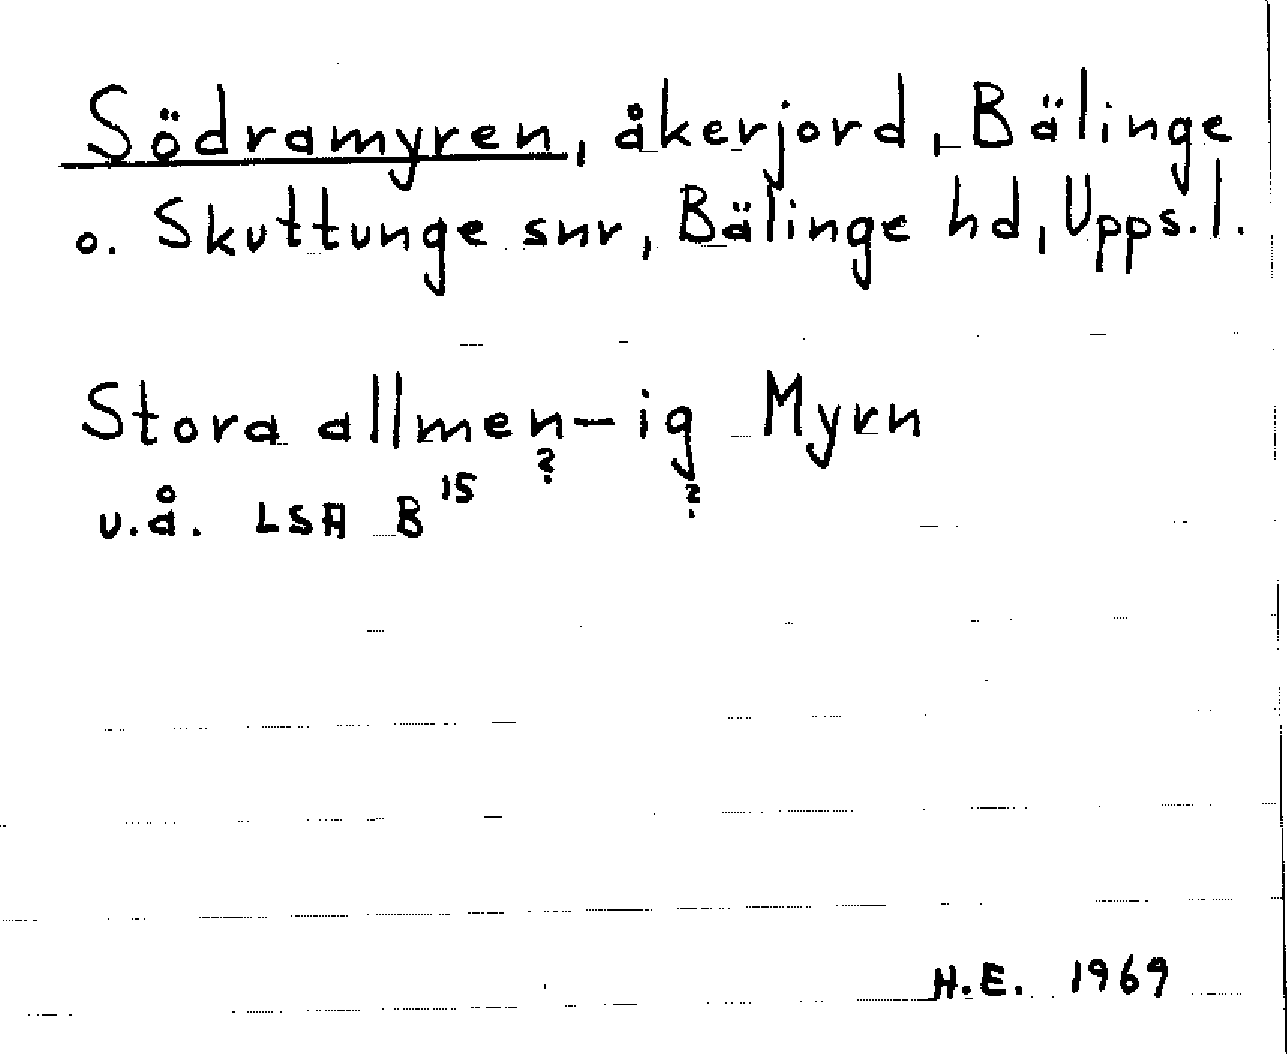 Södramyren, åkerjord, Bälinge
o. Skuttunge snr, Bälinge hd, Upps.l.
Stora allmen-ig Myrn
? ?
u.å. LSA B 15
H.E. 1969